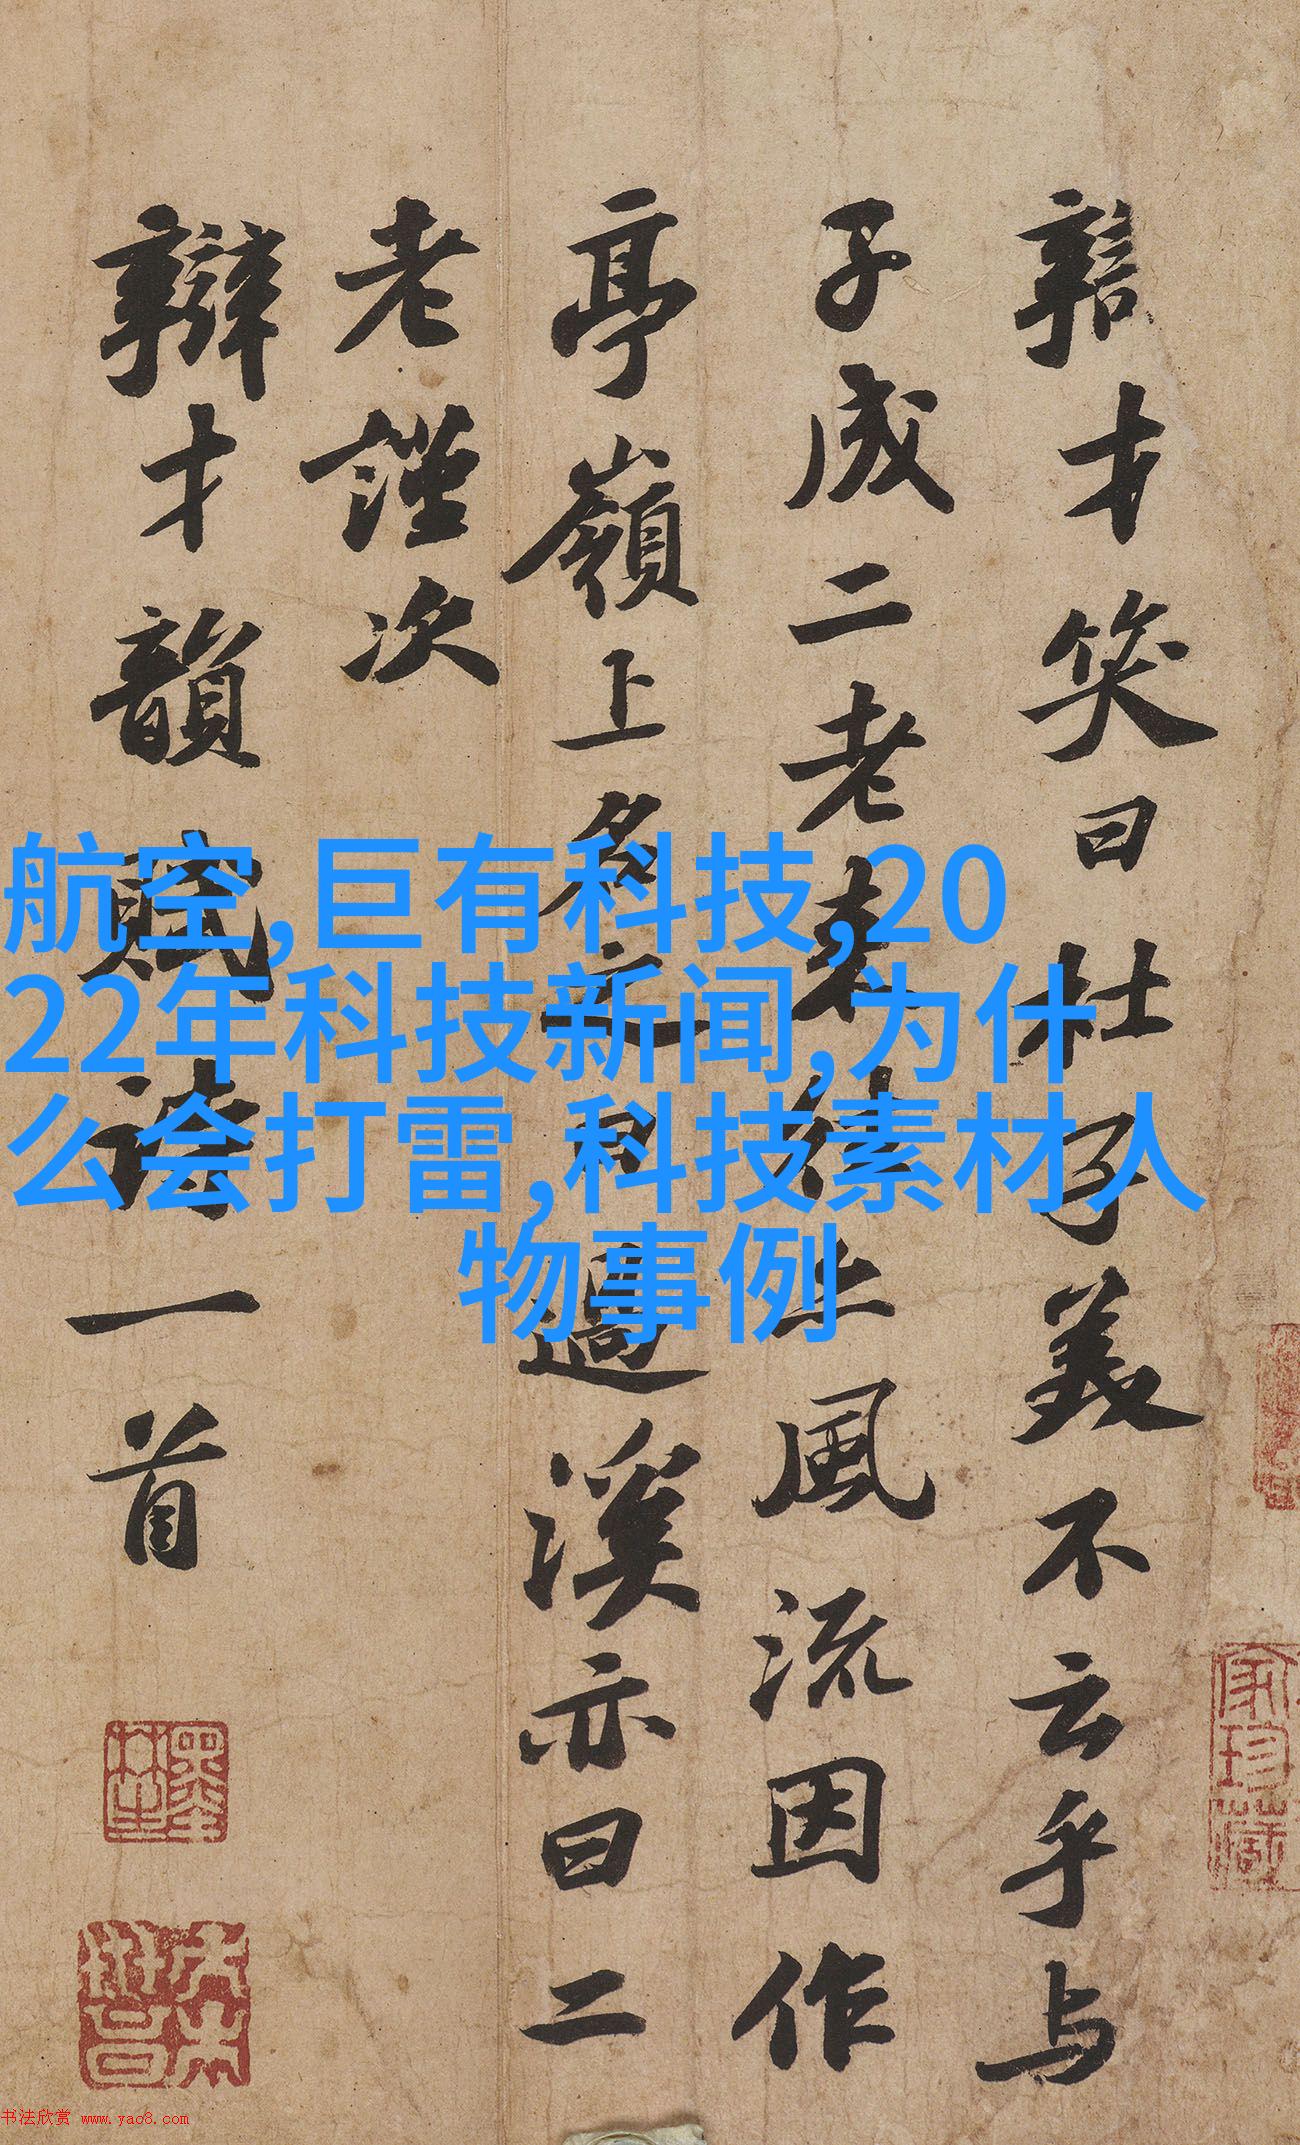 辯才笑曰杜子美不云乎与
子成二老来往亦風流因作
亭嶺上名之曰過溪亦曰二
老謹次
辯才韻賦詩一首
航空,巨有科技,20
22年科技新闻,为什
么会打雷,科技素材人
物事例
家珍藏
书法欣赏 www.yac8.com